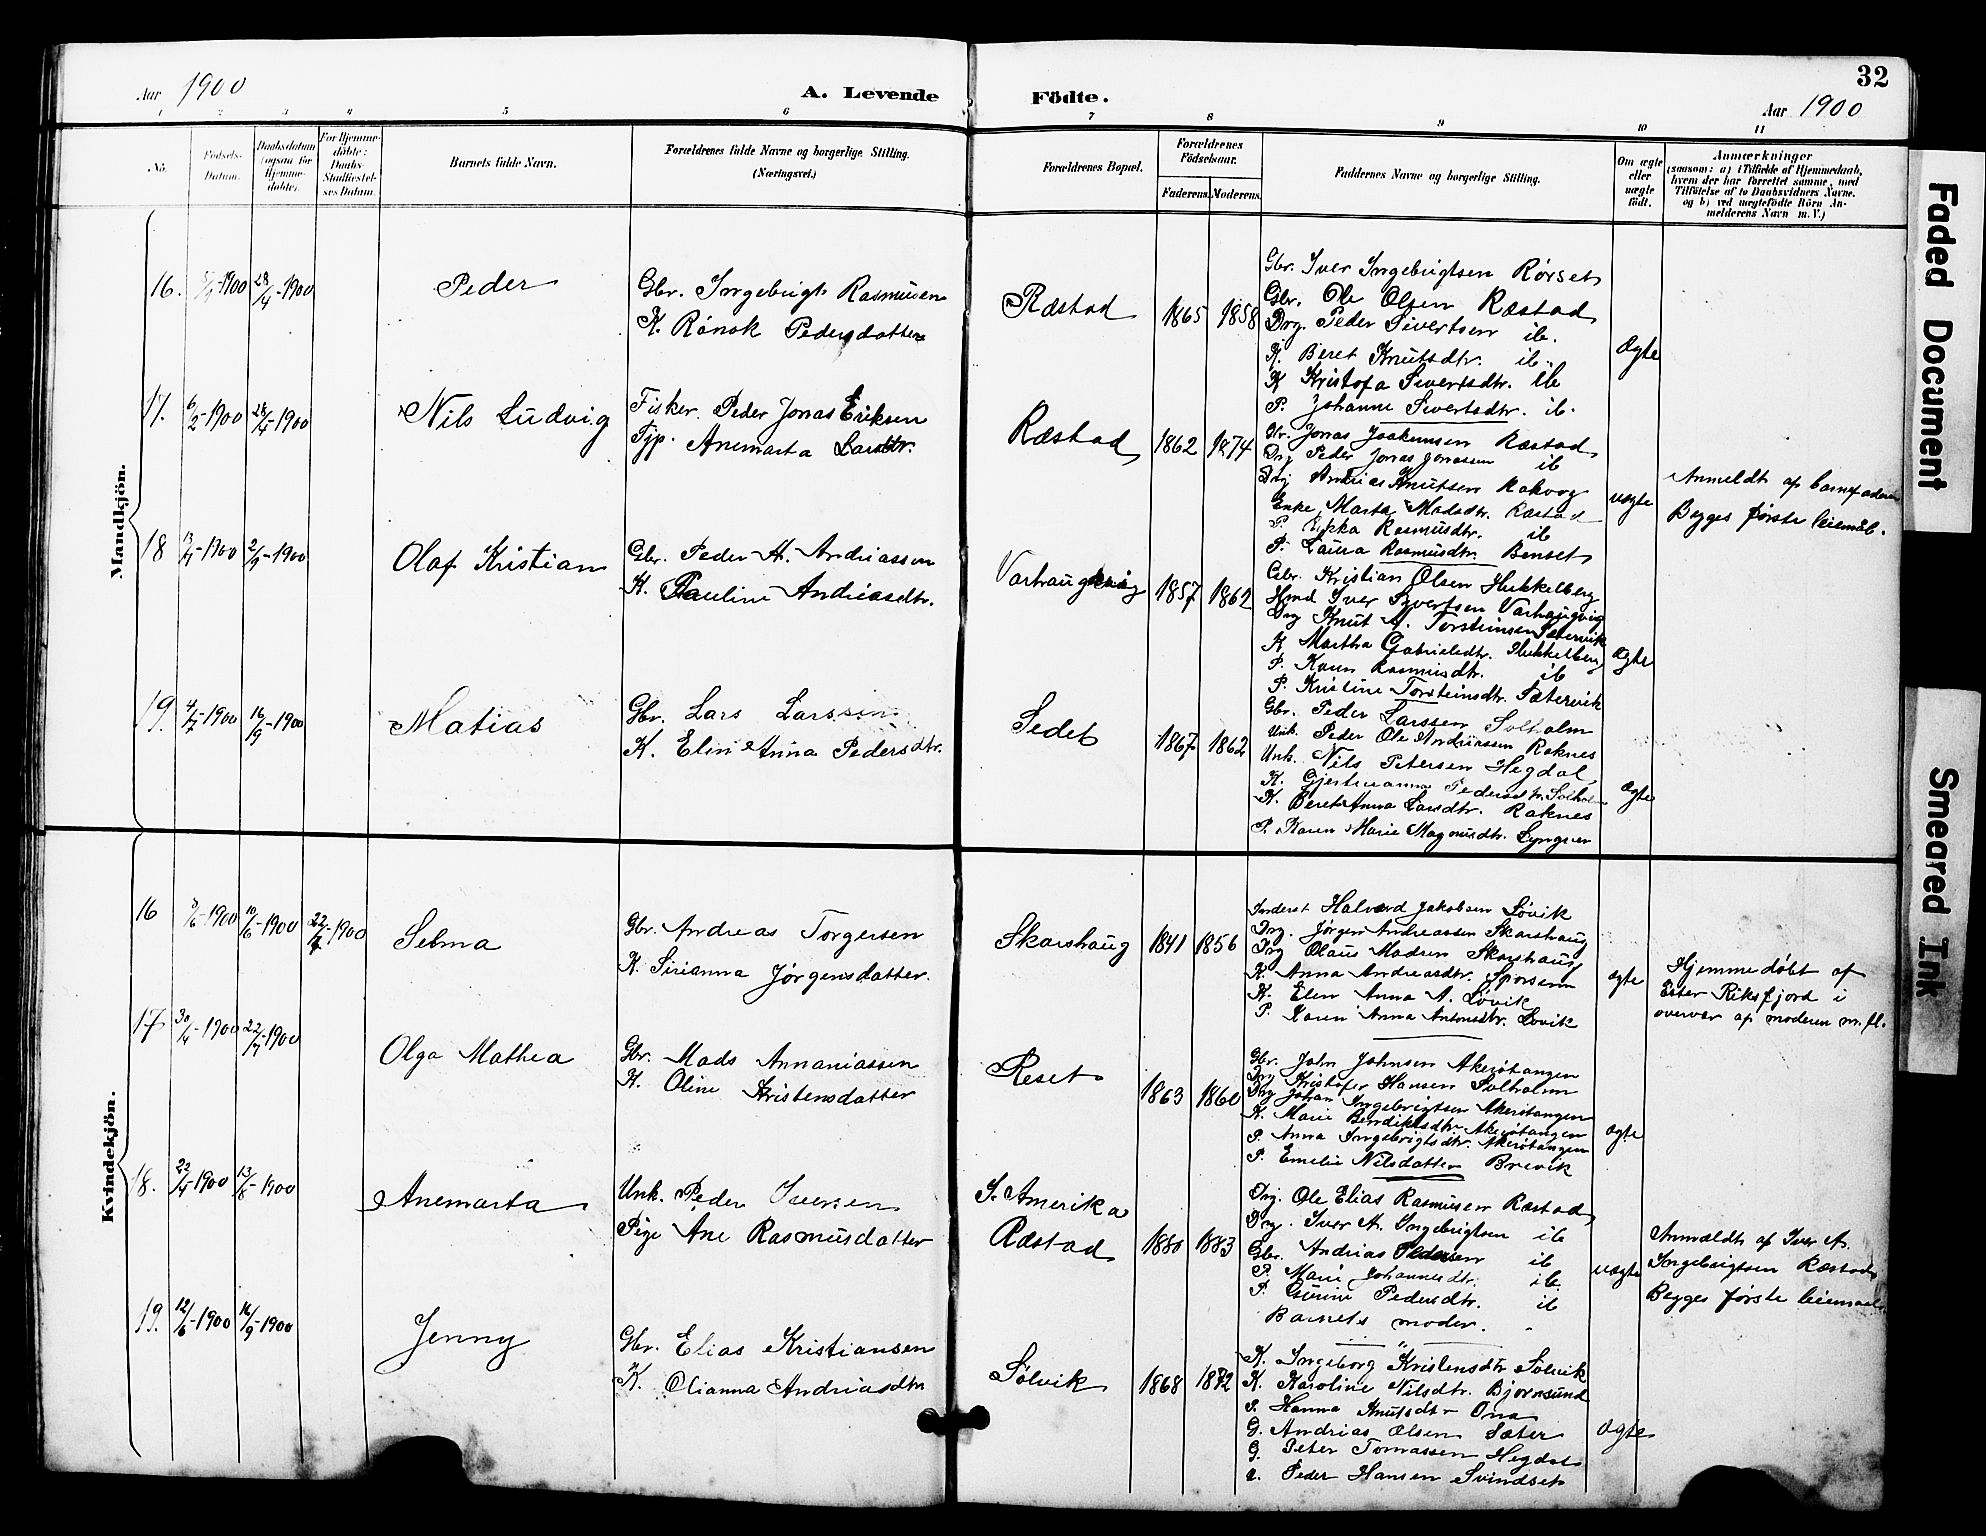 32
Aar 1900
A. Levende Födte.
Aar 1900
1 2 3 4 5 6 7 8 9 10 11
No.
Födsels-Datum.
Daabsdatum (ogsaa for Hjemme-döbte).
For Hjemme-döbte: Daabs-Stadfæstel-ses Datum.
Barnets fulde Navn.
Forældrenes fulde Navne og borgerlige Stilling. (Næringsvei.)
Forældrenes Bopæl.
Forældrenes Födselsaar.
Faderens. Moderens.
Faddernes Navne og borgerlige Stilling.
Om ægte eller uægte födt.
Anmærkninger
(saasom: a) i Tilfælde af Hjemmedaab,
hvem der har forrettet samme, med
Tilföielse af to Daabsvidners Navne.
og b) ved uægtefödte Börn An-
melderens Navn m. V.)
Mandkjön.
16. 28/4-1900
Peder
Gbr. Ingebrigt Rasmusen
K. Rönok Pedersdatter
Ræstad
1865 1858
Gbr. Iver Ingebrigtsen Rørset
Gbr. Ole Olsen Ræstad
Drg. Peder Sivertsen ib.
K. Beret Knutsdtr. ib.
K Kristofa Sivertsdtr. ib
P. Johanne Sivertsdtr. ib.
Ægte
17. 6/2-1900 28/4-1900
Nils Ludvig
Fisker. Peder Jonas Eriksen
Tjp. Anemarta Larsdtr.
Ræstad
1862 1874
Gbr. Jonas Joakimsen Ræstad
Drg Peder Jonas Jonassen ib
Drg Andrias Knutsen Rakvog
Enke Marta Madsdtr. Ræstad
P. Rasmusdtr. ib
P. Laura Rasmusdtr. Benset
uægte
Anmeldt af barnefaderen
Begges første leiemål.
18 13/4-1900 2/9-1900
Olaf Kristian
Gbr. Peder A. Andriassen
K. Pauline Andriasdtr.
Varhaugvig
1857 1862
Gbr. Kristian Olsen Hukkelberg
Hmd Iver Sivertsen Varhaugvig
Drg Knut A. Torsteinsen Sætervik
K Martha Gabrielsdtr. Hukkelberg
P. Karen Rasmusdtr. ib
P. Kristine Torsteinsdtr. Sætervik
Ægte
19. 4/7-1900 16/9-1900
Matias
Gbr. Lars Larssen
K. Elen Anna Pedersdtr.
Sedet
1867 1862
Gbr. Peder Larssen Solholm
Unk. Peder Ole Andriassen Raknes
Unk. Nils Petersen Hegdal
K. Gjertruanna Pedersdtr. Solholm
K. Beret Anna Larsdtr. Raknes
P. Karen Marie Magnusdtr. Lyngver
Ægte
Kvindekjön.
16 3/6-1900 10/6-1900 22/7-1900
Selma
Gbr. Andreas Torgersen
K. Sirianna Jørgensdatter.
Skarshaug
1841 1856
Inderst Halvard Jakobsen Løvik
Drg. Jørgen Andreassen Skarshaug
Drg Olaus Madsen Skarshaug
K. Anna Andreasdtr.
K. Elen Anna A. Løvik
P. Karen Anna Antonsdtr. Løvik
ægte
Hjemmedøbt af
Ester Riksfjord i
overvær af moderen m.fl.
17 30/4-1900 22/7-1900
Olga Mathea
Gbr. Mads Annaniassen
K. Oline Kristensdatter
Reset
1863 1860
Gbr. John Johnsen Akerøtangen
Drg Kristofer Hansen Solholm
Drg Johan Ingebrigtsen Akerøtangen
K. Marie Bendiktsdtr. Akerøtangen
P. Anna Ingebrigtsdtr. Akerøtangen
P. Emelie Nilsdatter Brevik
ægte
18. 22/4-1900 13/8-1900
Anemarta
Unk. Peder Iversen
Pige Ane Rasmusdatter
S. Amerika
Ræstad
1880 1883
Drg. Ole Elias Rasmusen Ræstad
Drg. Iver A. Ingebrigtsen ib
Gbr. Andrias Pedersen ib
P. Marie Johannesdtr. ib
P. Gurine Pedersdtr. ib
Barnets moder.
uægte
Anmældt af Iver A.
Ingebrigtsen Ræstad
Begges første leiemaal
19. 12/6-1900 16/9-1900
Jenny
Gbr. Elias Kristiansen
K. Olianna Andriasdtr
Sølvik
1868 1872
K. Ingeborg Kristensdtr Sølvik
K. Karoline Nilsdtr. Bjørnsund
P. Hanna Knutsdtr Ona
G. Andrias Olsen Sæter
G. Peter Tomassen Hegdal
Peder Hansen Svindset
ægte
Faded Document
Smeared Ink